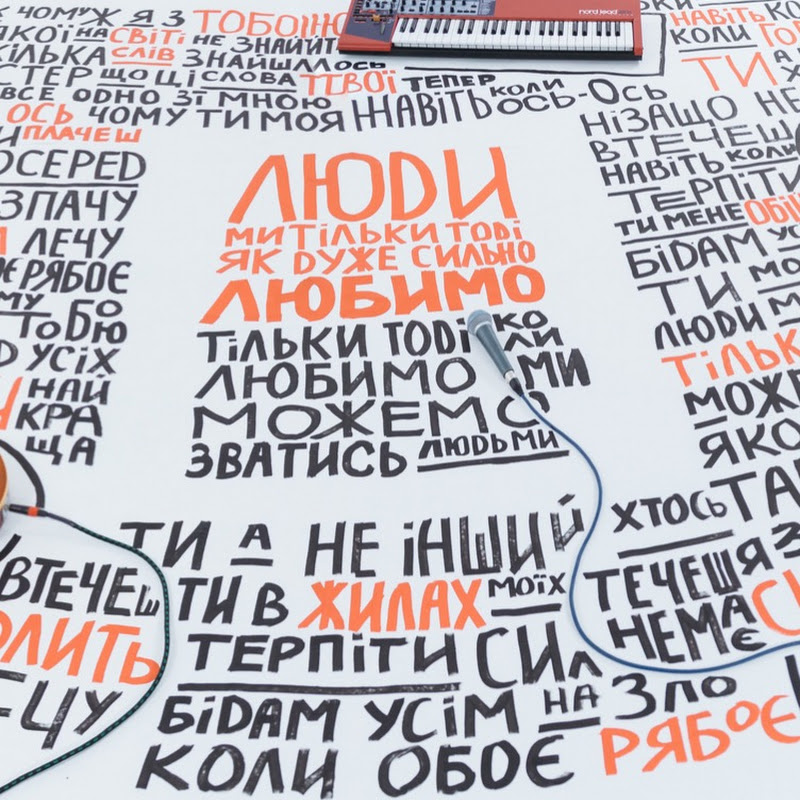 ЧОМУ Ж Я З ТОБОЮ
ЯКОЇ НА СВІТІ НЕ ЗНАЙТИ
КІЛЬКА СЛІВ ЗНАЙШЛ ОСЬ
ТЕПЕР ЩО ЦІ СЛОВА ТВОЇ ТЕПЕР КОЛИ
ВСЕ ОДНО ЗІ МНОЮ НАВІТЬ ОСЬ-ОСЬ
ОСЬ ЧОМУ ТИ МОЯ
ПЛАЧЕШ
nord lead
НАВІТЬ
КОЛИ
ТИ А
НІЗАЩО НЕ
ВТЕЧЕШ
НАВІТЬ КОЛИ
ТЕРПІТИ
ТИ МЕНЕ ОБІ
БІДАМ УС
ТИ МО
ЛЮДИ М
ТІЛЬК
МОЖ
ЯКО
ОСЕРЕД
ЗПАЧУ
ЛЕЧУ
РЯБОЄ
МУ БО
ТОБЮ
УСІХ
НАЙ
КРА
ЩА
ЛЮДИ
МИ ТІЛЬКИ ТОДІ
ЯК ДУЖЕ СИЛЬНО
ЛЮБИМО
ТІЛЬКИ ТОДІ КОЛИ
ЛЮБИМО МИ
МОЖЕМО
ЗВАТИСЬ ЛЮДЬМИ
ТИ А НЕ ІНШИЙ ХТОСЬ ТА
ВТЕЧЕШ ТИ В ЖИЛАХ МОЇХ ТЕЧЕШ Я З
ОЛИТЬ ТЕРПІТИ СИЛ НЕМАЄ СИ
ЦУ БІДАМ УСІМ НА ЗЛО
КОЛИ ОБОЄ РЯБОЄ